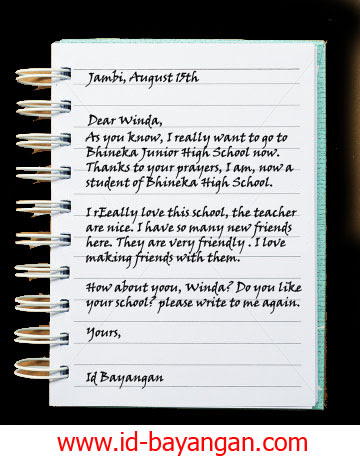 Jambi, August 15th
Dear Winda,
As you know, I really want to go to
Bhineka Junior High School now.
Thanks to your prayers, I am, now a
student of Bhineka High School.
I rEeally love this school, the teacher
are nice. I have so many new friends
here. They are very friendly . I love
making friends with them.
How about yoou, Winda? Do you like
your school? please write to me again.
Yours,
Id Bayangan
www.id-bayangan.com